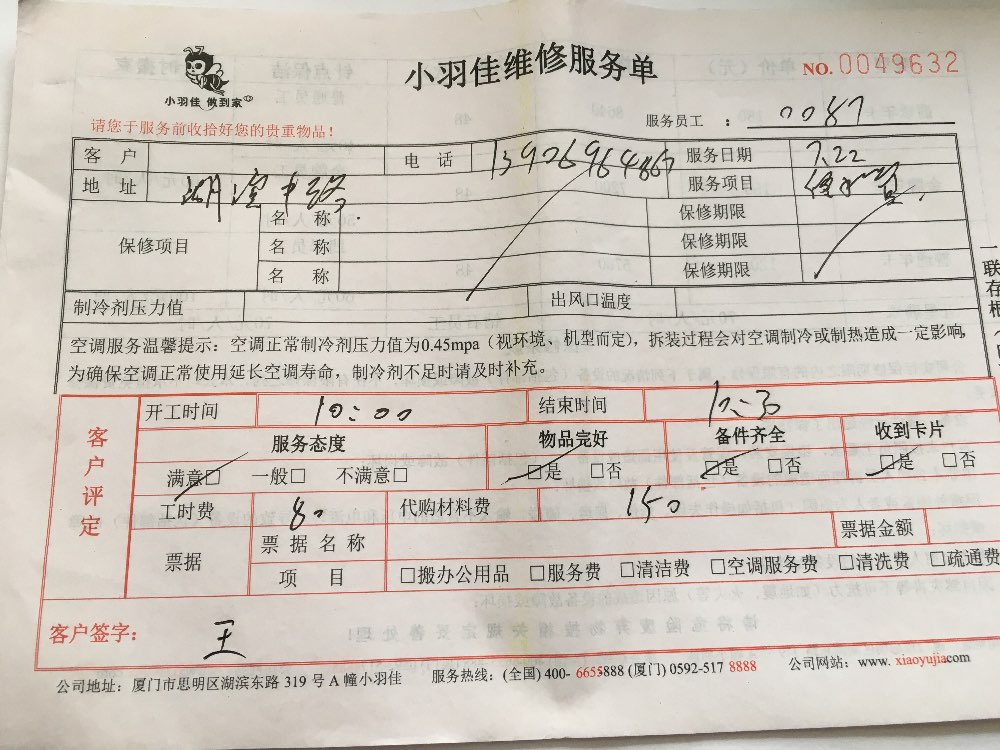 小羽佳维修服务单
NO. 0049632
小羽佳 做到家
请您于服务前收拾好您的贵重物品！
服务员工 ： 0087
客 户 电 话 13906964867 服务日期 7.22
地 址 服务项目
保修项目 名 称 保修期限
名 称 保修期限
名 称 保修期限
制冷剂压力值 出风口温度
空调服务温馨提示：空调正常制冷剂压力值为0.45mpa（视环境、机型而定），拆装过程会对空调制冷或制热造成一定影响，
为确保空调正常使用延长空调寿命，制冷剂不足时请及时补充。
客户评定
开工时间 10:00 结束时间 10:30
服务态度 物品完好 备件齐全 收到卡片
满意□ 一般□ 不满意□ □是 □否 □是 □否 □是 □否
工时费 80 代购材料费 150
票据 票 据 名 称 票据金额
项 目 □搬办公用品 □服务费 □清洁费 □空调服务费 □清洗费 □疏通费
客户签字： 王
公司地址：厦门市思明区湖滨东路 319 号 A 幢小羽佳 服务热线：(全国) 400- 6655888 (厦门) 0592-517 8888 公司网站：www. xiaoyujia.com
一联存根